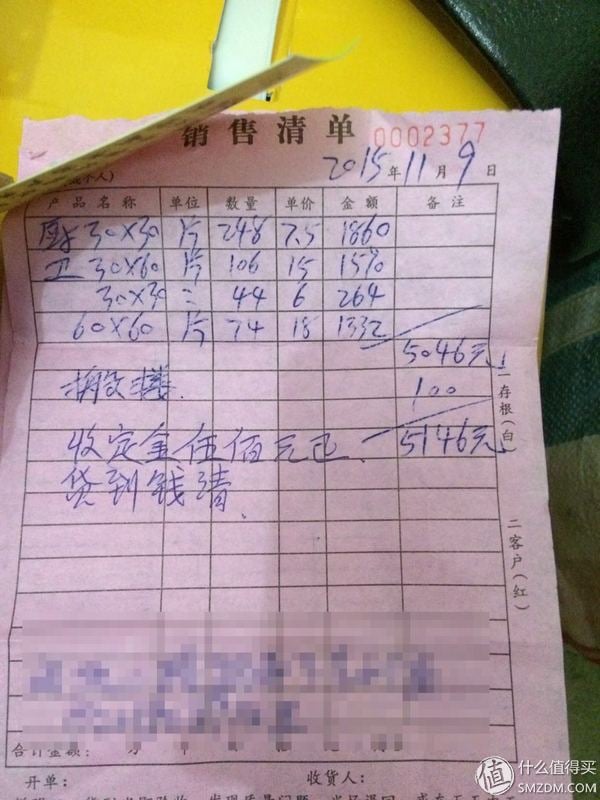 销售清单 0002377
2015年11月9日
个人)
产品名称 单位 数量 单价 金额 备注
厨 30×30 片 248 7.5 1860
卫 30×60 片 106 15 1590
30×30 = 44 6 264
60×60 片 74 18 1332
5046元
搬 楼 100
收定金伍佰元正 5146元
货到钱清
一存根(白)
二客户(红)
合计金额:
开单: 收货人:
值 什么值得买
SMZDM.COM